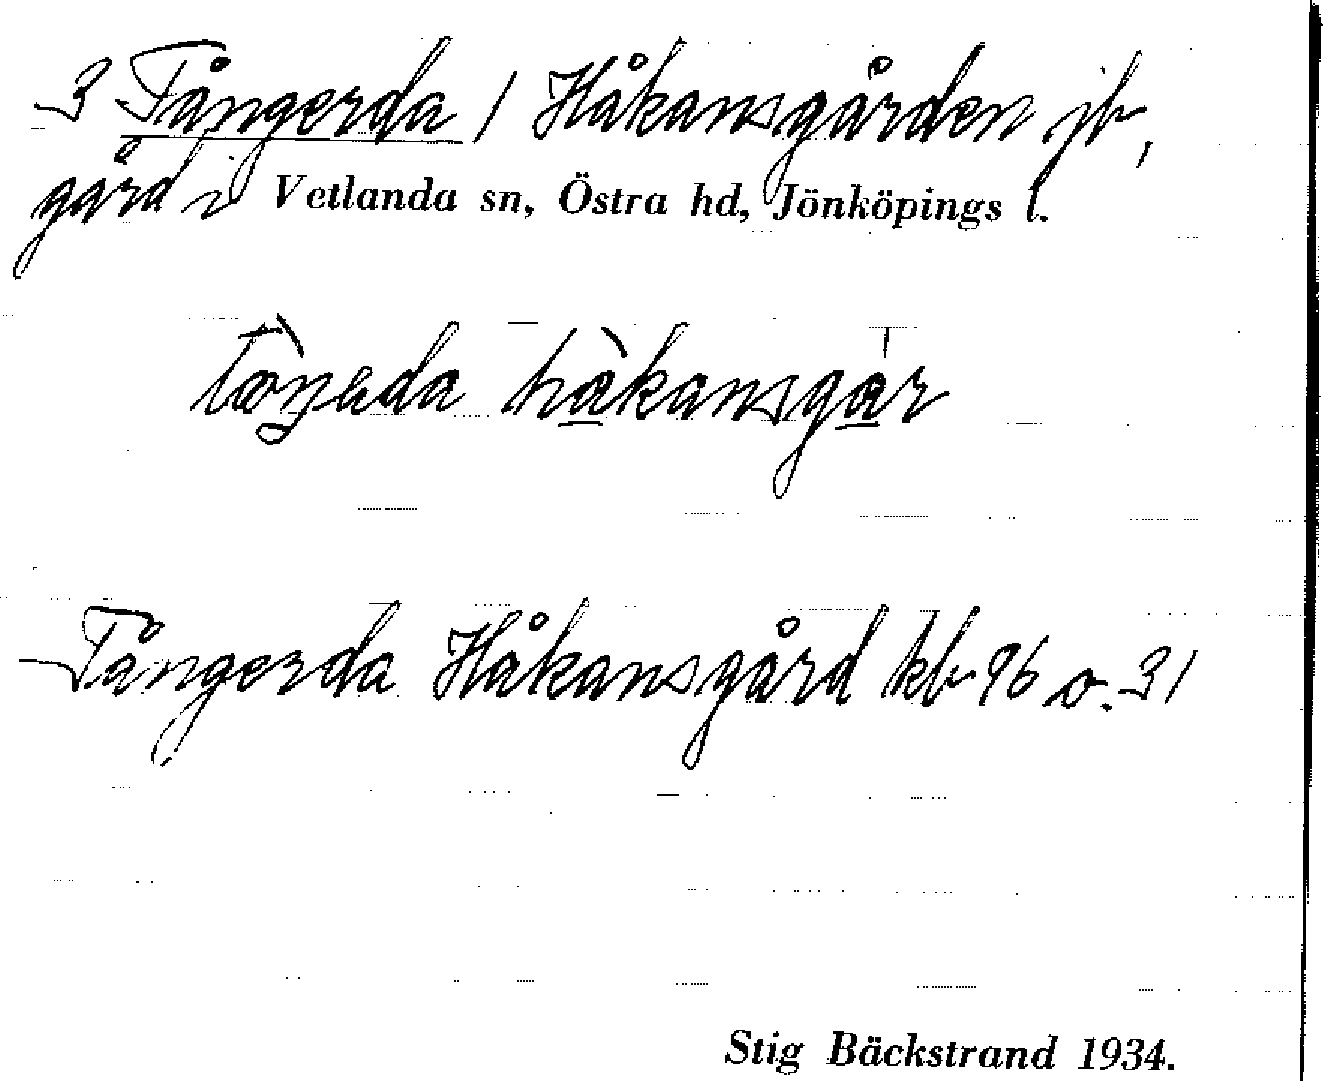 3 Tångerda / Håkansgården jb,
gård i Vetlanda sn, Östra hd, Jönköpings l.
håkansgår
Tångerda Håkansgård kb 96 o. 31
Stig Bäckstrand 1934.